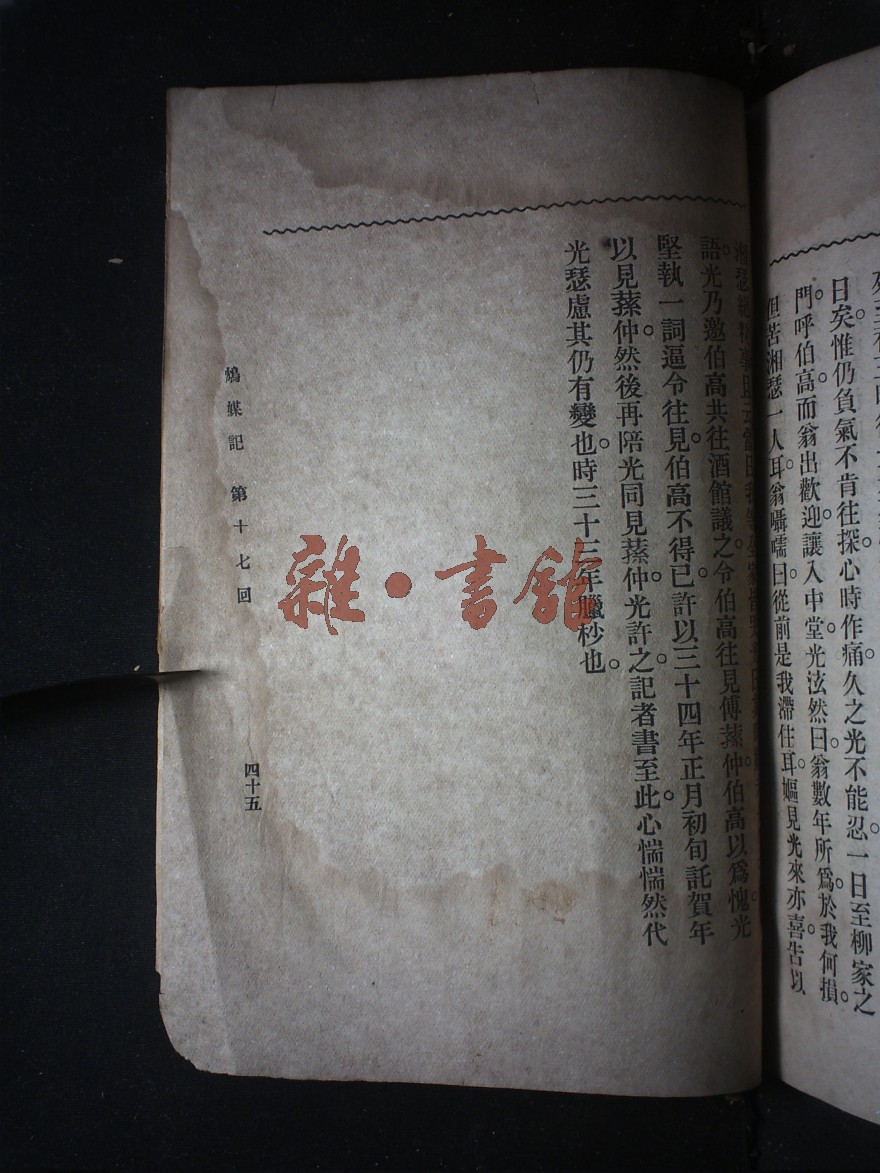 日矣。惟仍負氣不肯往探。心時作痛。久之光不能忍。一日至柳家之
門。呼伯高。而翁出歡迎。讓入中堂。光泫然曰。翁數年所爲。於我何損。
但苦湘瑟一人耳。翁囁嚅曰。從前是我滯住耳。嫗見光來亦喜。告以
語。光乃邀伯高共往酒館議之。令伯高往見傅蓀仲。伯高以爲愧。光
堅執一詞。逼令往見。伯高不得已。許以三十四年正月初旬。託賀年
以見蓀仲。然後再陪光同見蓀仲。光許之。記者書至此。心惴惴然。代
光瑟慮其仍有變也。時三十三年臘杪也。
鴆媒記 第十七回
四十五
雜·書館